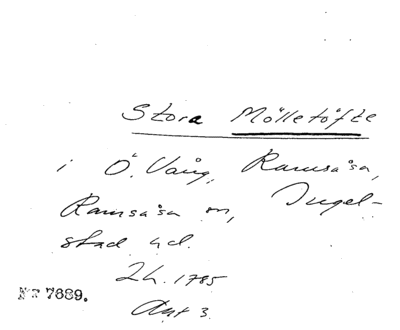 Stora Mölletöfte
i Ö. Vång, Ramsåsa,
Ramsåsa sn, Ingel-
stad hd.
Lh. 1785
Akt 3
NT 7689.